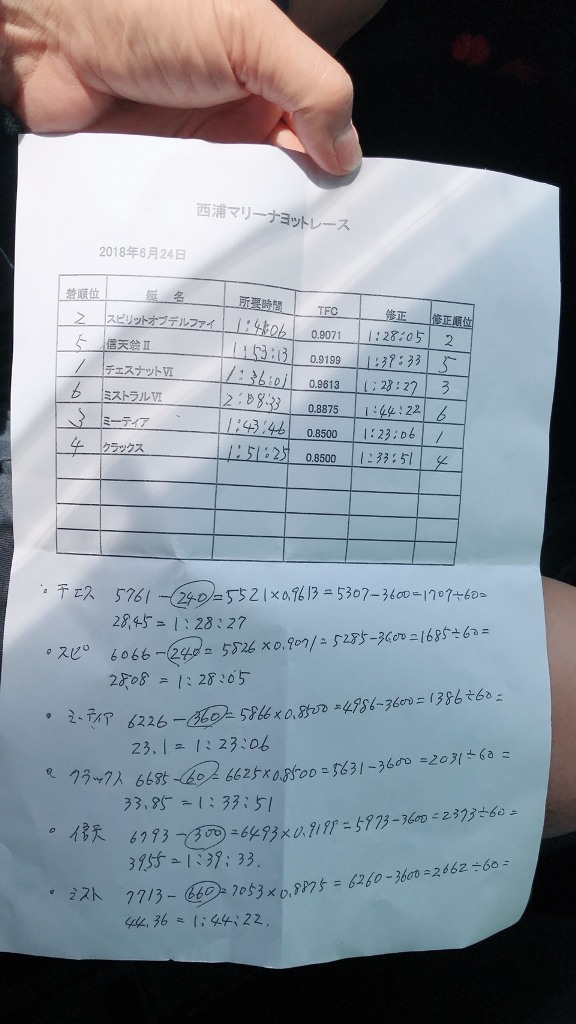 西浦マリーナヨットレース
2018年6月24日
着順位 艇 名 所要時間 TFC 修正 修正順位
2 スピリットオブデルファイ 1:41:06 0.9071 1:28:05 2
5 信天翁Ⅱ 1:53:13 0.9199 1:39:33 5
1 チェスナットⅥ 1:36:01 0.9613 1:28:27 3
6 ミストラルⅥ 2:08:33 0.8875 1:44:22 6
3 ミーティア 1:43:46 0.8500 1:23:06 1
4 クラックス 1:51:25 0.8500 1:33:51 4
・チェス 5761-240=5521×0.9613=5307-3600=1707÷60=
28.45=1:28:27
・スピ 6066-240=5826×0.9071=5285-3600=1685÷60=
28.08=1:28:05
・ミーティア 6226-360=5866×0.8500=4986-3600=1386÷60=
23.1=1:23:06
・クラックス 6685-60=6625×0.8500=5631-3600=2031÷60=
33.85=1:33:51
・信天 6793-300=6493×0.9199=5973-3600=2373÷60=
39.55=1:39:33.
・ミスト 7713-660=7053×0.8875=6260-3600=2662÷60=
44.36=1:44:22.